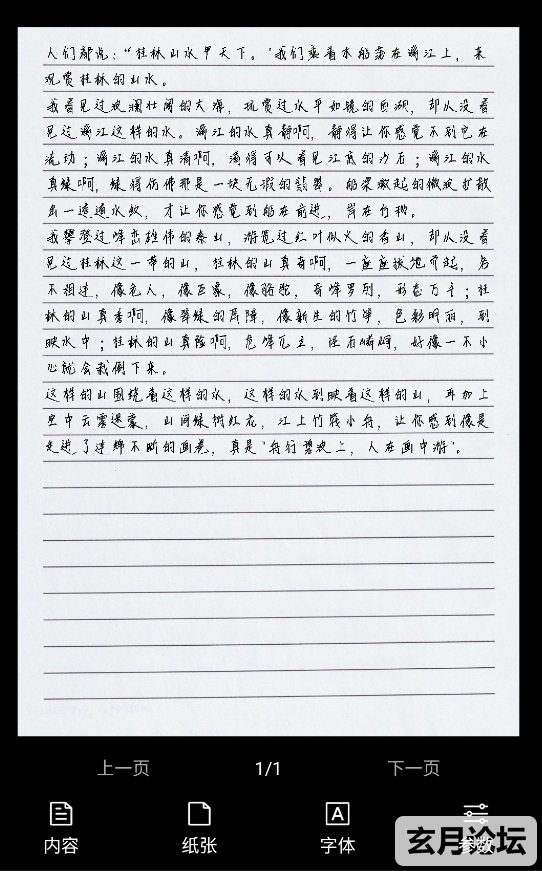 人们都说：“桂林山水甲天下。”我们乘着木船荡在漓江上，来
观赏桂林的山水。
我看见过波澜壮阔的大海，玩赏过水平如镜的西湖，却从没看
见过漓江这样的水。漓江的水真静啊，静得让你感觉不到它在
流动；漓江的水真清啊，清得可以看见江底的沙石；漓江的水
真绿啊，绿得仿佛那是一块无瑕的翡翠。船桨激起的微波扩散
出一道道水纹，才让你感觉到船在前进，岸在后移。
我攀登过峰峦雄伟的泰山，游览过红叶似火的香山，却从没看
见过桂林这一带的山，桂林的山真奇啊，一座座拔地而起，各
不相连，像老人，像巨象，像骆驼，奇峰罗列，形态万千；桂
林的山真秀啊，像翠绿的屏障，像新生的竹笋，色彩明丽，倒
映水中；桂林的山真险啊，危峰兀立，怪石嶙峋，好像一不小
心就会栽倒下来。
这样的山围绕着这样的水，这样的水倒映着这样的山，再加上
空中云雾迷蒙，山间绿树红花，江上竹筏小舟，让你感到像是
走进了连绵不断的画卷，真是“舟行碧波上，人在画中游”。
上一页 1/1 下一页
内容 纸张 字体 参数
玄月论坛